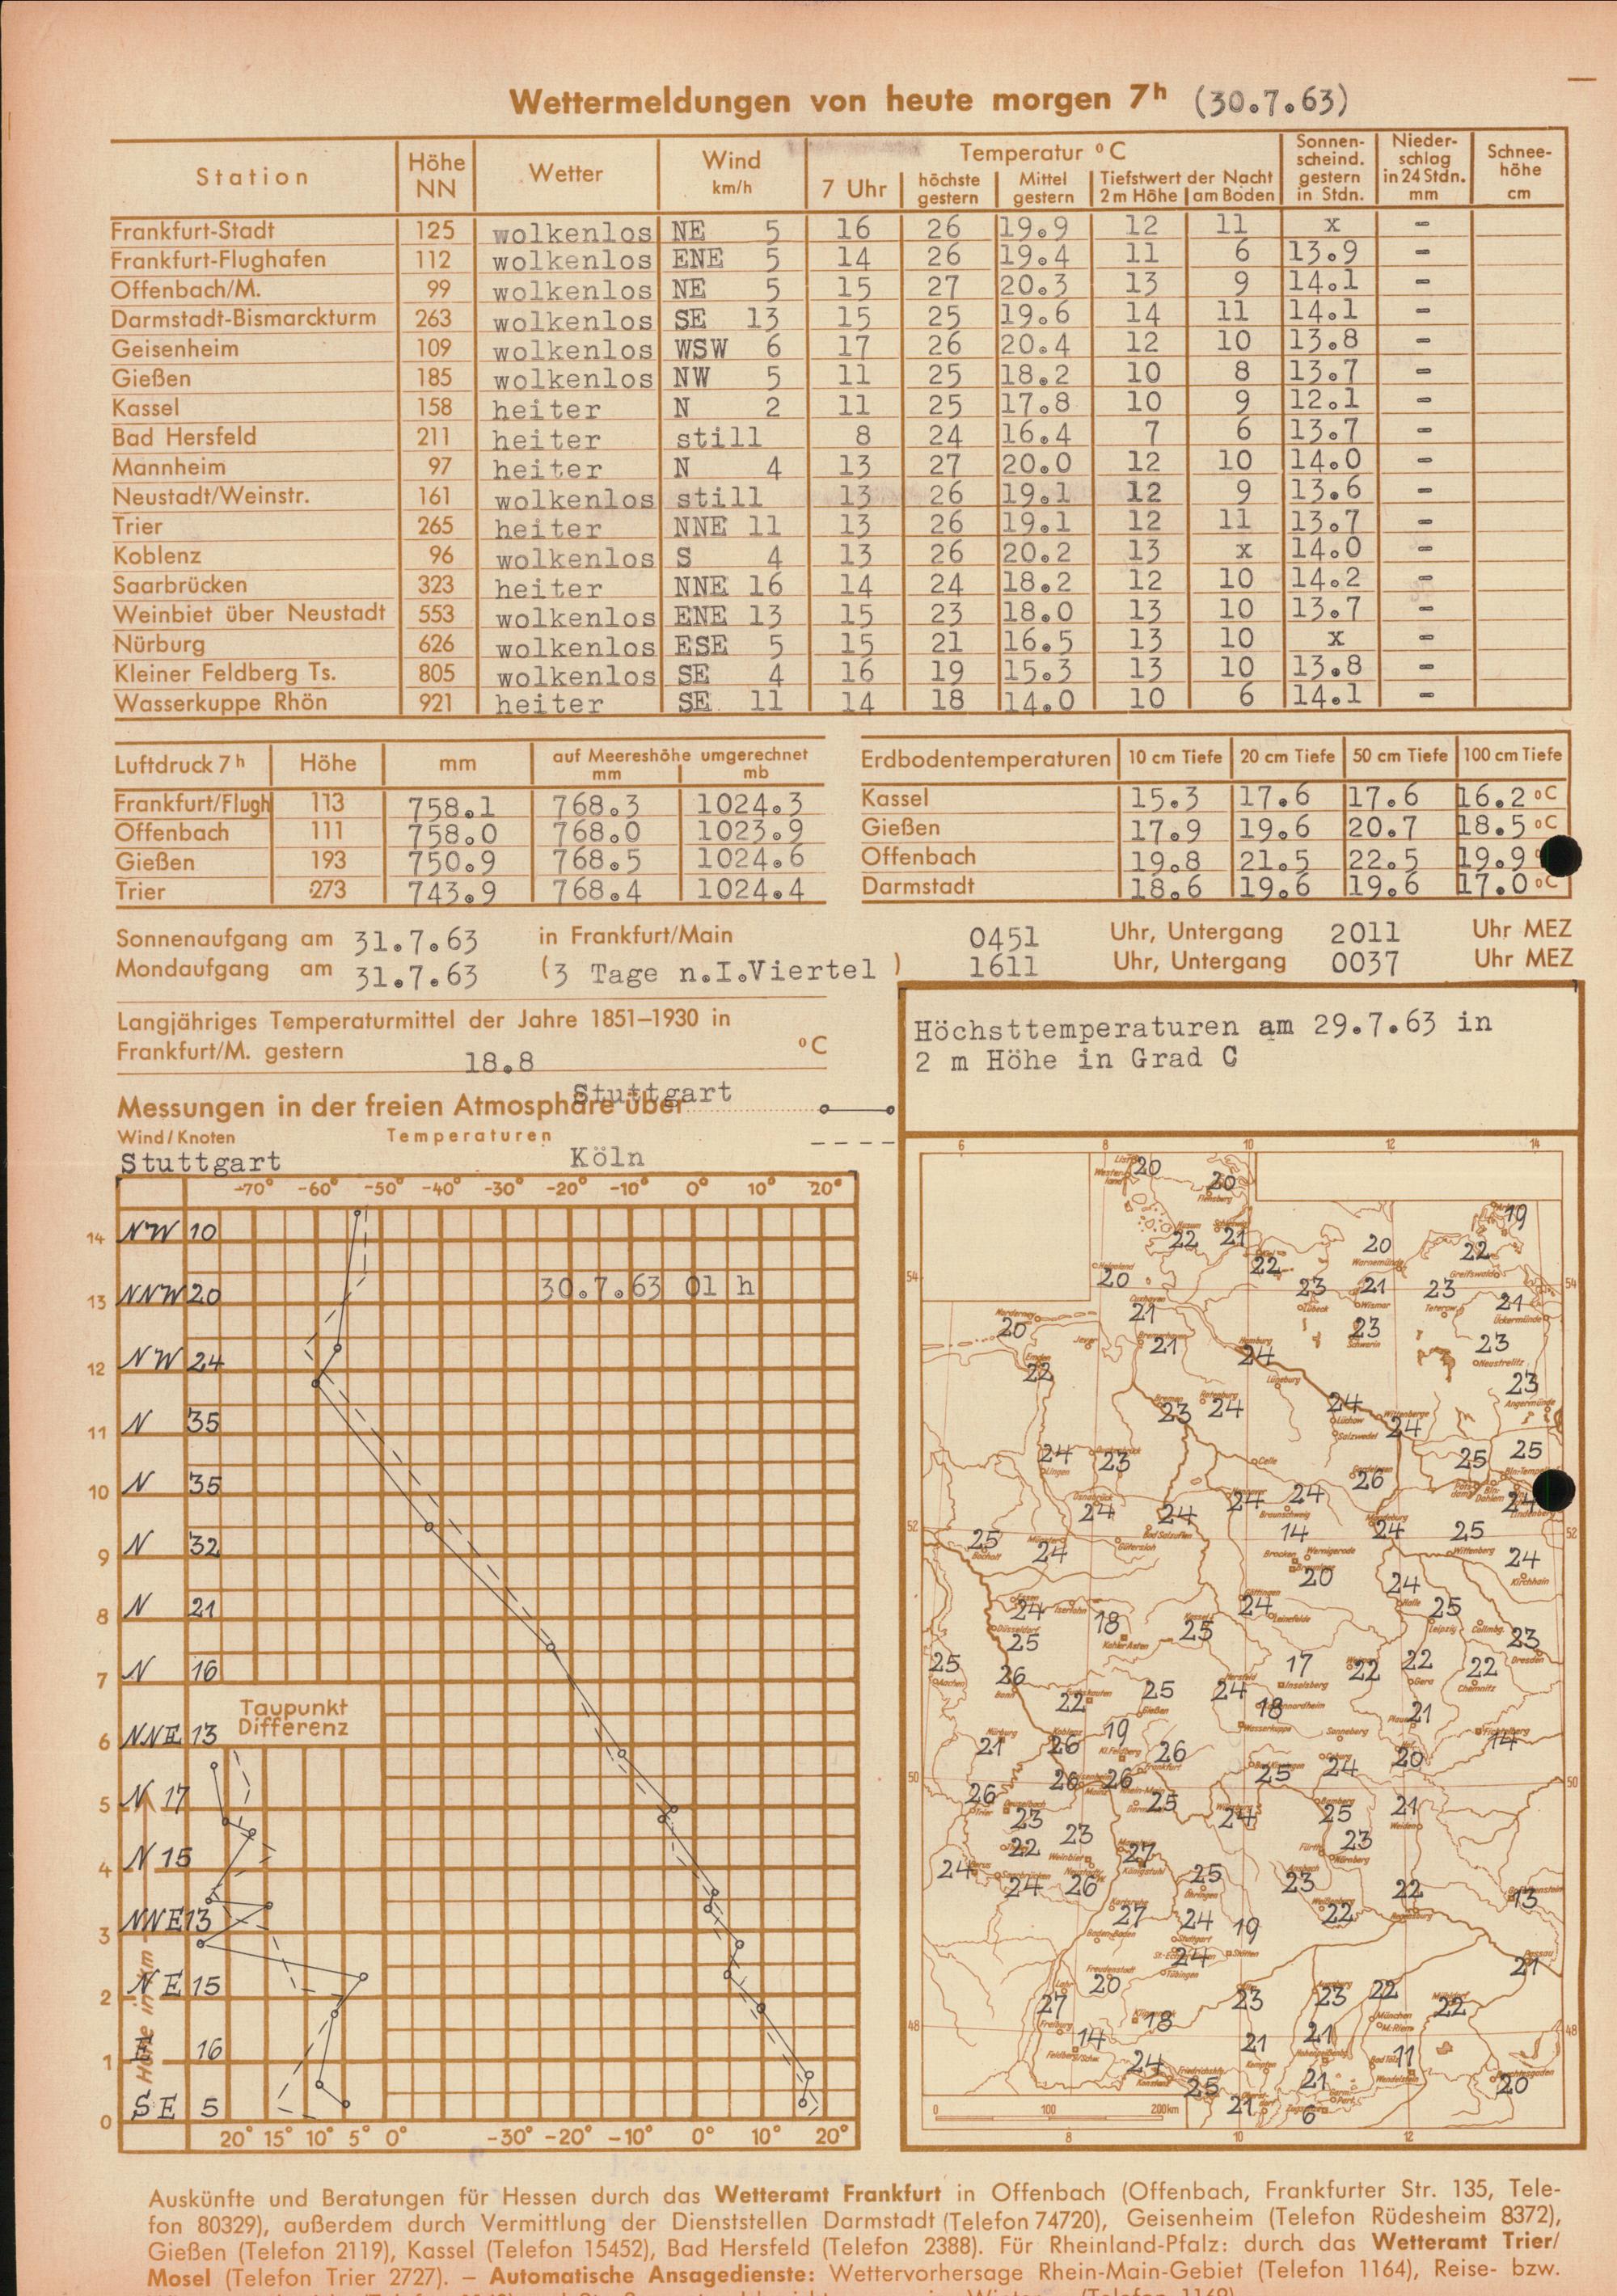 Wettermeldungen von heute morgen 7h (30.7.63)
Station Höhe NN Wetter Wind km/h Temperatur °C Sonnen-scheind. gestern in Stdn. Nieder-schlag in 24 Stdn. mm Schnee-höhe cm
7 Uhr höchste gestern Mittel gestern Tiefstwert der Nacht 2 m Höhe am Boden
Frankfurt-Stadt 125 wolkenlos NE 5 16 26 19.9 12 11 x -
Frankfurt-Flughafen 112 wolkenlos ENE 5 14 26 19.4 11 6 13.9 -
Offenbach/M. 99 wolkenlos NE 5 15 27 20.3 13 9 14.1 -
Darmstadt-Bismarckturm 263 wolkenlos SE 13 15 25 19.6 14 11 14.1 -
Geisenheim 109 wolkenlos WSW 6 17 26 20.4 12 10 13.8 -
Gießen 185 wolkenlos NW 5 11 25 18.2 10 8 13.7 -
Kassel 158 heiter N 2 11 25 17.8 10 9 12.1 -
Bad Hersfeld 211 heiter still 8 24 16.4 7 6 13.7 -
Mannheim 97 heiter N 4 13 27 20.0 12 10 14.0 -
Neustadt/Weinstr. 161 wolkenlos still 13 26 19.1 12 9 13.6 -
Trier 265 heiter NNE 11 13 26 19.1 12 11 13.7 -
Koblenz 96 wolkenlos S 4 13 26 20.2 13 x 14.0 -
Saarbrücken 323 heiter NNE 16 14 24 18.2 12 10 14.2 -
Weinbiet über Neustadt 553 wolkenlos ENE 13 15 23 18.0 13 10 13.7 -
Nürburg 626 wolkenlos ESE 5 15 21 16.5 13 10 x -
Kleiner Feldberg Ts. 805 wolkenlos SE 4 16 19 15.3 13 10 13.8 -
Wasserkuppe Rhön 921 heiter SE 11 14 18 14.0 10 6 14.1 -
Luftdruck 7h Höhe mm auf Meereshöhe umgerechnet mm mb
Frankfurt/Flugh 113 758.1 768.3 1024.3
Offenbach 111 758.0 768.0 1023.9
Gießen 193 750.9 768.5 1024.6
Trier 273 743.9 768.4 1024.4
Erdbodentemperaturen 10 cm Tiefe 20 cm Tiefe 50 cm Tiefe 100 cm Tiefe
Kassel 15.3 17.6 17.6 16.2 °C
Gießen 17.9 19.6 20.7 18.5 °C
Offenbach 19.8 21.5 22.5 19.9
Darmstadt 18.6 19.6 19.6 17.0 °C
Sonnenaufgang am 31.7.63 in Frankfurt/Main 0451 Uhr, Untergang 2011 Uhr MEZ
Mondaufgang am 31.7.63 (3 Tage n.I.Viertel ) 1611 Uhr, Untergang 0037 Uhr MEZ
Langjähriges Temperaturmittel der Jahre 1851–1930 in
Frankfurt/M. gestern 18.8 °C
Messungen in der freien Atmosphäre über Stuttgart
Wind/Knoten Temperaturen
Stuttgart Köln
-70° -60° -50° -40° -30° -20° -10° 0° 10° 20°
14 NW 10
30.7.63 01 h
13 NNW 20
12 NW 24
11 N 35
10 N 35
9 N 32
8 N 21
7 N 16
Taupunkt
Differenz
6 NNE 13
5 N 17
4 N 15
3 NNE 13
2 NE 15
1 E 16
0 SE 5
Höhe in km
20° 15° 10° 5° 0° -30° -20° -10° 0° 10° 20°
Höchsttemperaturen am 29.7.63 in
2 m Höhe in Grad C
6 8 10 12 14
20 20 19
Flensburg
22 21 22 20 22
Warnemünde
54 Helgoland 20 Greifswald 54
23 21 23 21
Lübeck Wismar Teterow Ückermünde
Norderney 20 21 Cuxhaven
21 24 Hamburg 23 Schwerin 23 Neustrelitz
Emden 22 Lüneburg 23 Angermünde
Bremen 23 24 24 Lüchow 24 Wittenberge
Salzwedel
24 Lingen 23 Celle 26 25 25
Osnabrück 24 24 24 24 Braunschweig
Bad Salzuflen Magdeburg 24
52 25 Bocholt Münster 24 Gütersloh 14 Brocken Wernigerode 25 Wittenberg 52
20 24 Kirchhain
Essen 24 Iserlohn 18 Kahler Asten Göttingen 24 Leinefelde 24 Halle 25 Leipzig
Düsseldorf 25 Kassel 25 23 Dresden
25 Aachen 26 Bonn 22 25 Gießen Hersfeld 24 17 Inselsberg 22 22 Gera 22 Chemnitz
18 Wasserkuppe Sonneberg Plauen 21 Fichtelberg 14
Nürburg 21 Koblenz 26 19 Kl. Feldberg 26 Frankfurt 25 24 Coburg 20
50 26 26 50
26 Trier 23 25 Darmstadt Würzburg 24 Bamberg 25 21 Weiden
22 23 Weinbiet 27 Königstuhl Fürth 23 Nürnberg
24 Saarbrücken 24 26 25 Öhringen Ansbach 23 22 13
Karlsruhe 27 24 Stuttgart 19 Stötten Weißenburg 22 Regensburg
Baden-Baden 24 Tübingen Passau 21
Freudenstadt 20
27 Freiburg 18 23 23 22 München Mühldorf 22
48 14 Feldberg/Schw. 21 Kempten 21 Hohenpeißenbg. Bad Tölz 11 Wendelstein 48
24 Konstanz Friedrichshfn. 25 21 21 20 Berchtesgaden
Zugspitze 6
0 100 200 km
8 10 12
Auskünfte und Beratungen für Hessen durch das Wetteramt Frankfurt in Offenbach (Offenbach, Frankfurter Str. 135, Tele-
fon 80329), außerdem durch Vermittlung der Dienststellen Darmstadt (Telefon 74720), Geisenheim (Telefon Rüdesheim 8372),
Gießen (Telefon 2119), Kassel (Telefon 15452), Bad Hersfeld (Telefon 2388). Für Rheinland-Pfalz: durch das Wetteramt Trier/
Mosel (Telefon Trier 2727). – Automatische Ansagedienste: Wettervorhersage Rhein-Main-Gebiet (Telefon 1164), Reise- bzw.